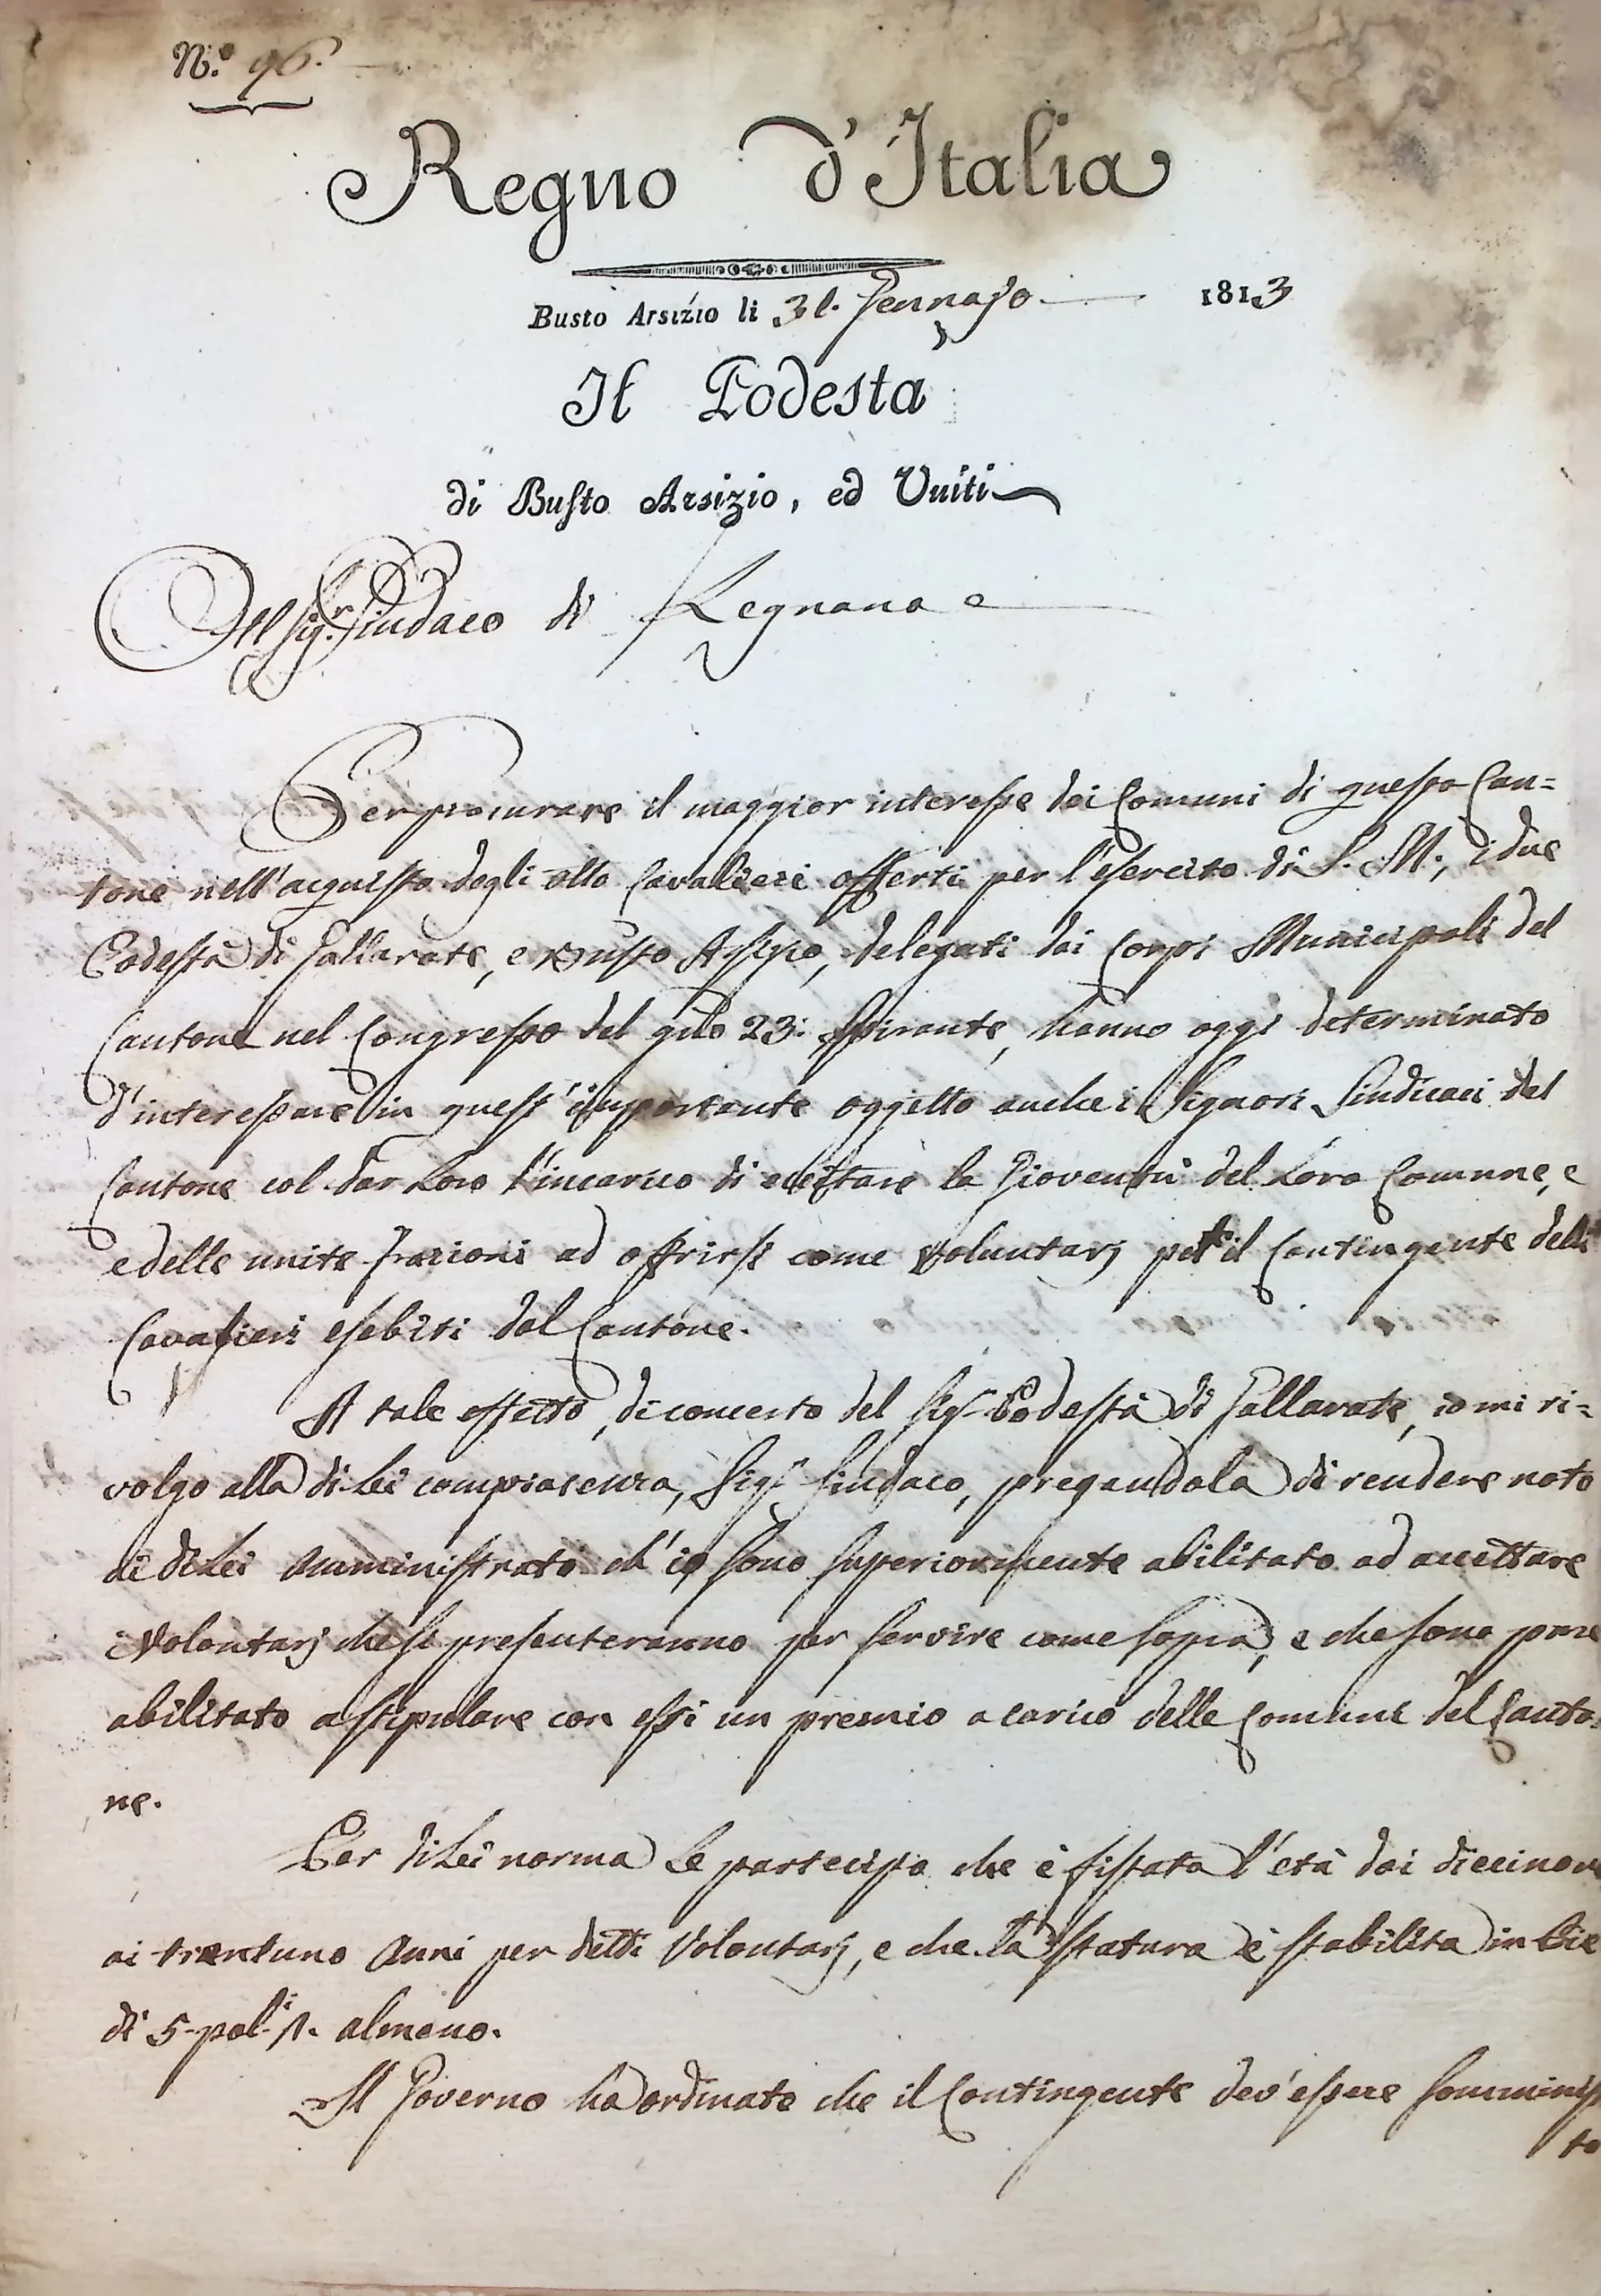 N.º 96.
Regno d'Italia
Busto Arsizio li 31. Gennajo 1813
Il Podestà
di Busto Arsizio, ed Uniti
Al Sig.r Sindaco di Legnano
Per procurare il maggior interesse dei Comuni di questo Can=
tone nell'acquisto degli otto Cavalieri offerti per l'esercito di S. M., i due
Podestà di Gallarate, e Busto Arsizio, delegati dai Corpi Municipali del
Cantone nel Congresso del g.no 23. spirante, hanno oggi determinato
d'interessare in quest'importante oggetto anche i Signori Sindaci del
Cantone col dar Loro l'incarico di eccitare la Gioventù del Loro Comune, e
e delle unite frazioni ad offrirsi come Voluntarj per il Contingente delli
Cavalieri esebiti dal Cantone.
A tale effetto, di concerto del Sig.r Podestà di Gallarate, io mi ri=
volgo alla di Lei compiacenza, Sig.r Sindaco, pregandola di rendere noto
ai di Lei Amministrati ch'io sono superiormente abilitato ad accettare
i Volontarj che si presenteranno per servire come sopra, e che sono pure
abilitato a stipulare con essi un premio a carico delle Comuni del Canto=
ne.
Per di Lei norma Le partecipo che è fissata l'età dai diecinove
ai trentuno Anni per detti Volontarj, e che la statura è stabilita in Pie
di 5. pol.i 1. almeno.
Il Governo ha ordinato che il Contingente dev'essere somminis
to